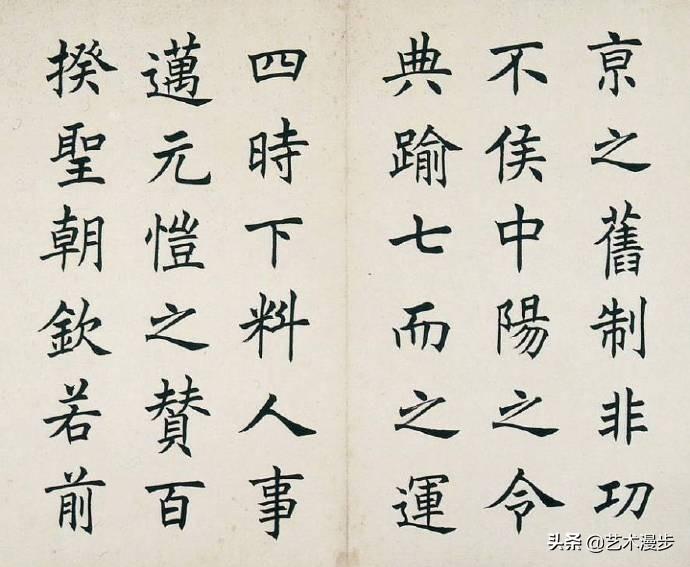 京之舊制非功
不侯中陽之令
典踰七而之運
四時下料人事
邁元愷之賛百
揆聖朝欽若前
头条 @艺术漫步